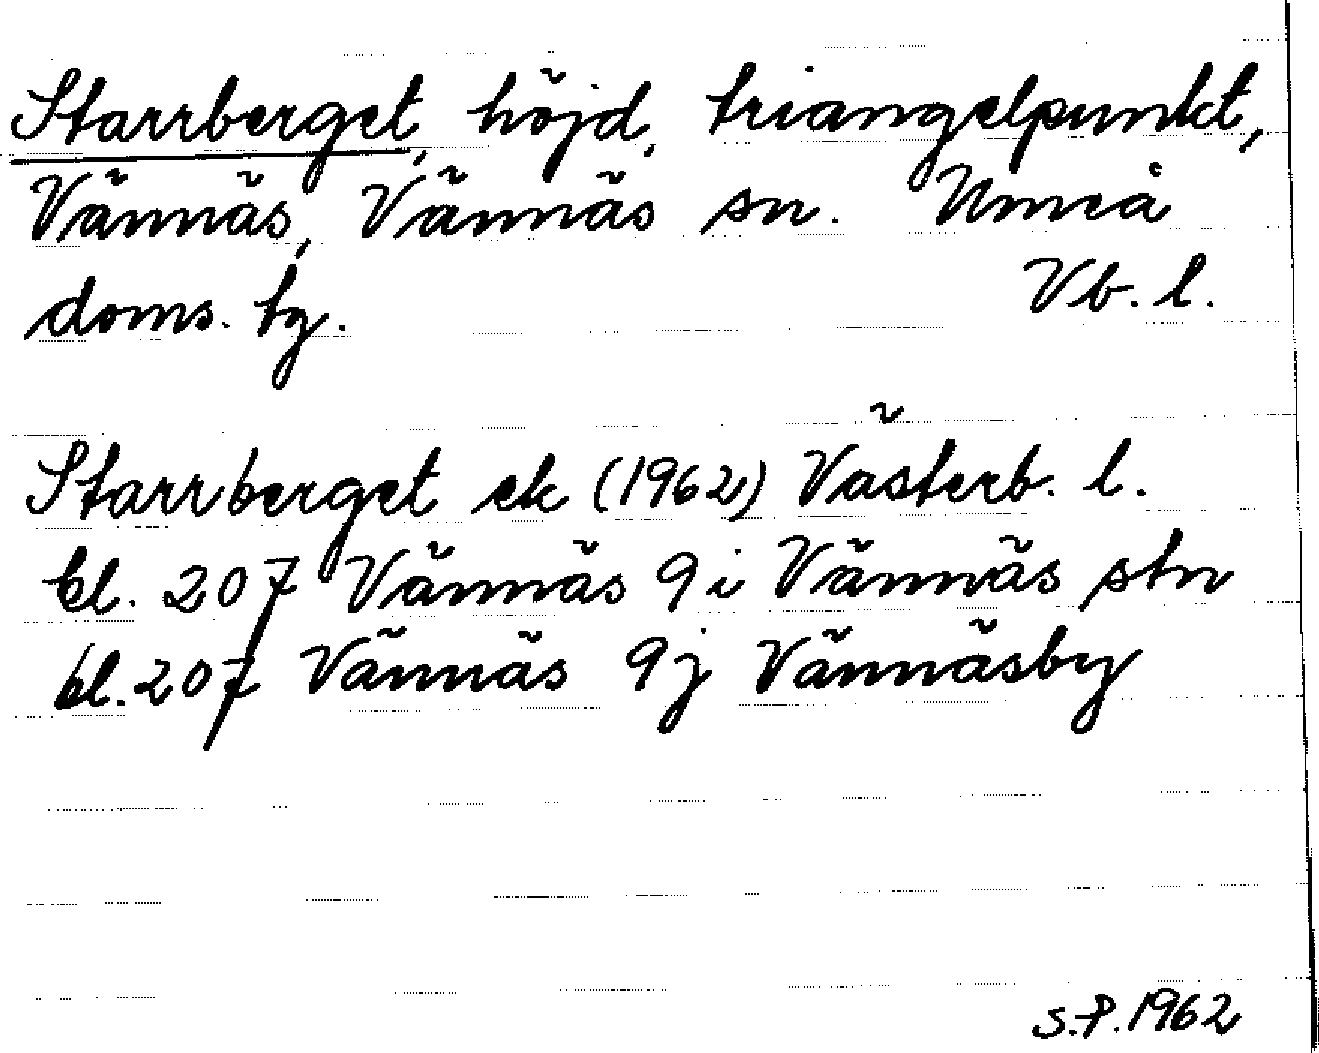 Starrberget, höjd, triangelpunkt,
Vännäs, Vännäs sn. Umeå
doms. tg. Vb. l.
Starrberget ek (1962) Västerb. l.
bl. 207 Vännäs 9i Vännäs stn
bl. 207 Vännäs 9j Vännäsby
S.P. 1962